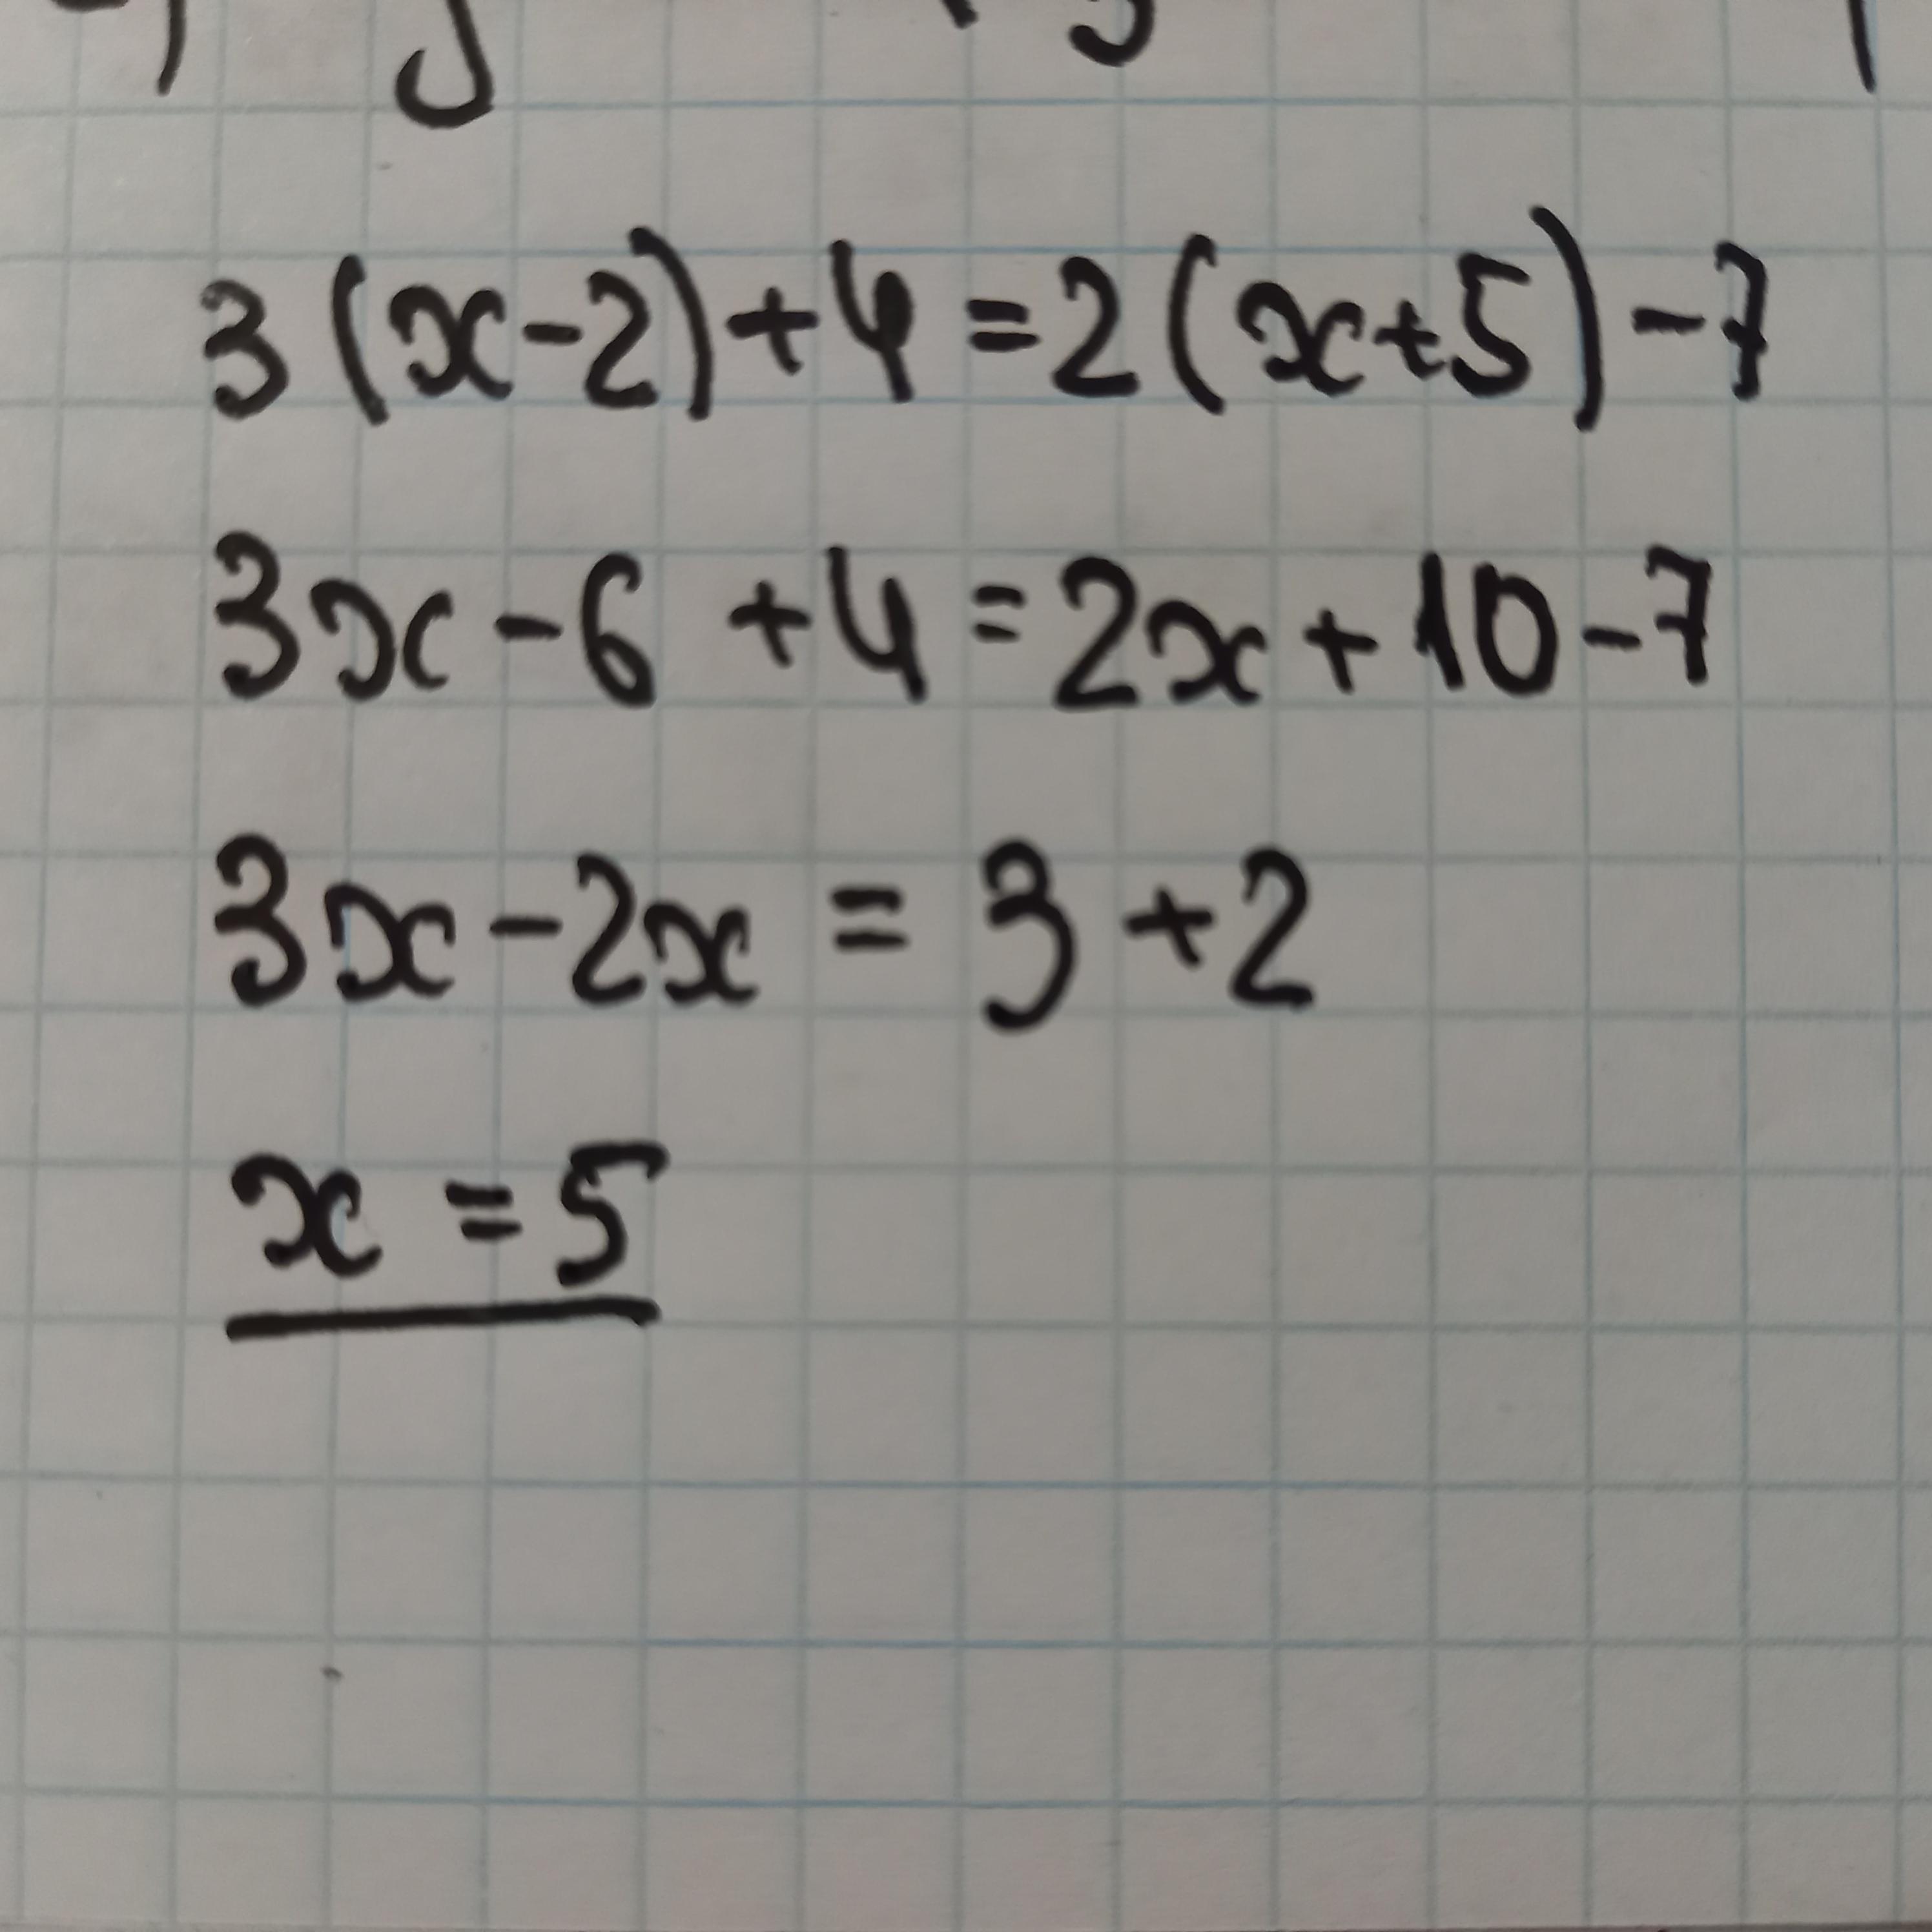 3(x-2)+4=2(x+5)-7
3x-6+4=2x+10-7
3x-2x=3+2
x=5